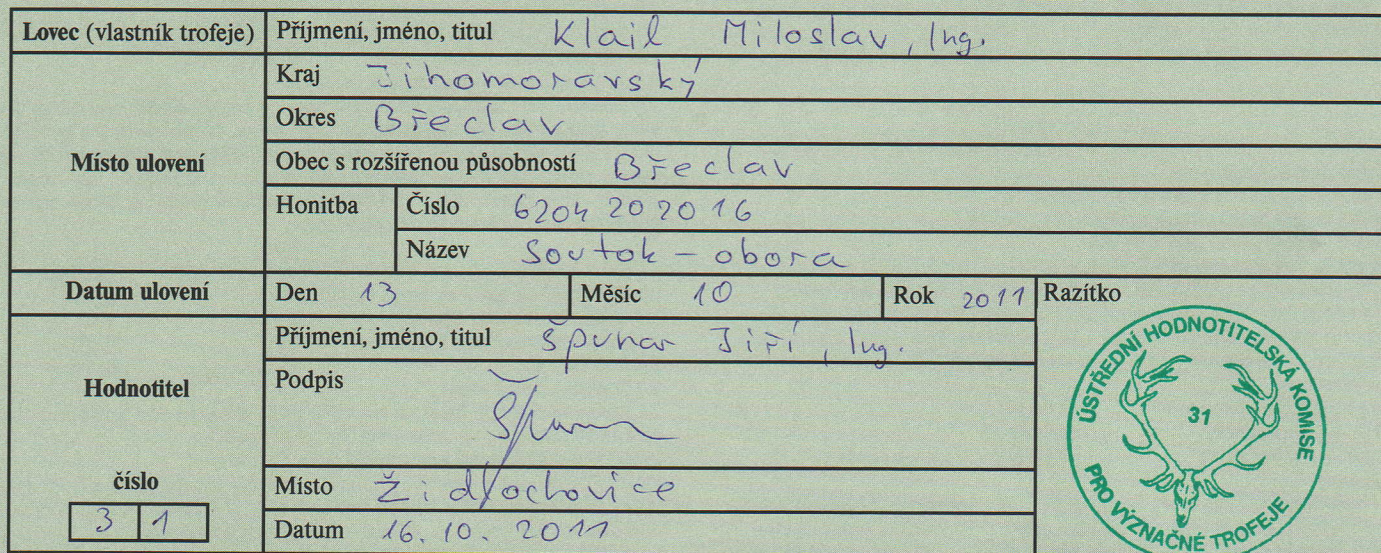 Lovec (vlastník trofeje) Příjmení, jméno, titul Klail Miloslav, Ing.
Místo ulovení
Kraj Jihomoravský
Okres Břeclav
Obec s rozšířenou působností Břeclav
Honitba Číslo 6204202016
Název Soutok - obora
Datum ulovení Den 13 Měsíc 10 Rok 2011 Razítko
Hodnotitel
Příjmení, jméno, titul Špunar Jiří, Ing.
Podpis
číslo
31
Místo Židlochovice
Datum 16. 10. 2011
ÚSTŘEDNÍ HODNOTITELSKÁ KOMISE
31
PRO VÝZNAČNÉ TROFEJE